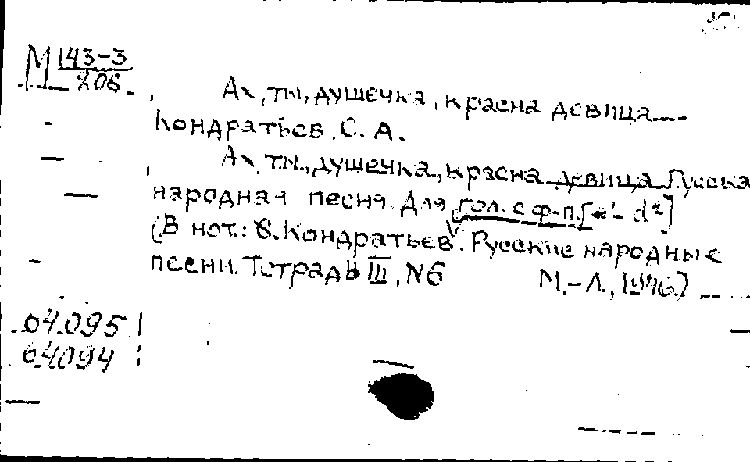 М 143-3
208
Ах, ты, душечка, красна девица...
Кондратьев С. А.
Ах, ты, душечка, красна девица. Русская
народная песня. Для гол. с ф-п. [e'- d²]
(В нот.: С. Кондратьев. Русские народные
песни. Тетрадь III, N6 М.-Л., 1946)
04.095
64094